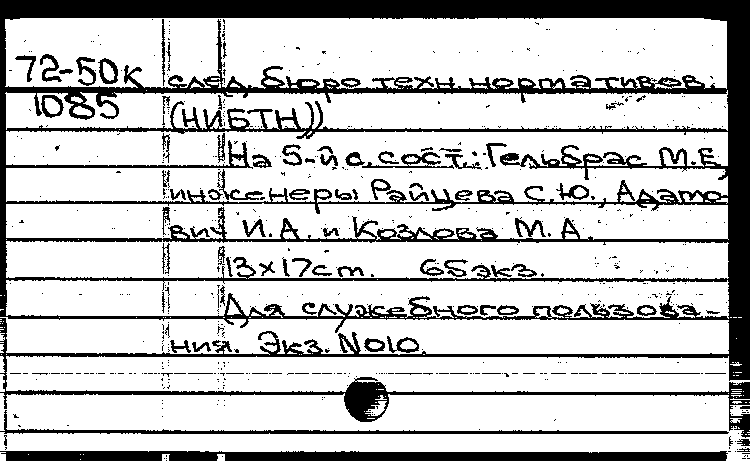 72-50к след. бюро техн. нормативов.
1085 (НИБТН))
На 5-й с. сост.: Гельбрас М.Е,
инженеры Райцева С.Ю., Адамо-
вич И.А. и Козлова М.А.
13х17 cm. 65 экз.
Для служебного пользова-
ния. Экз. N010.